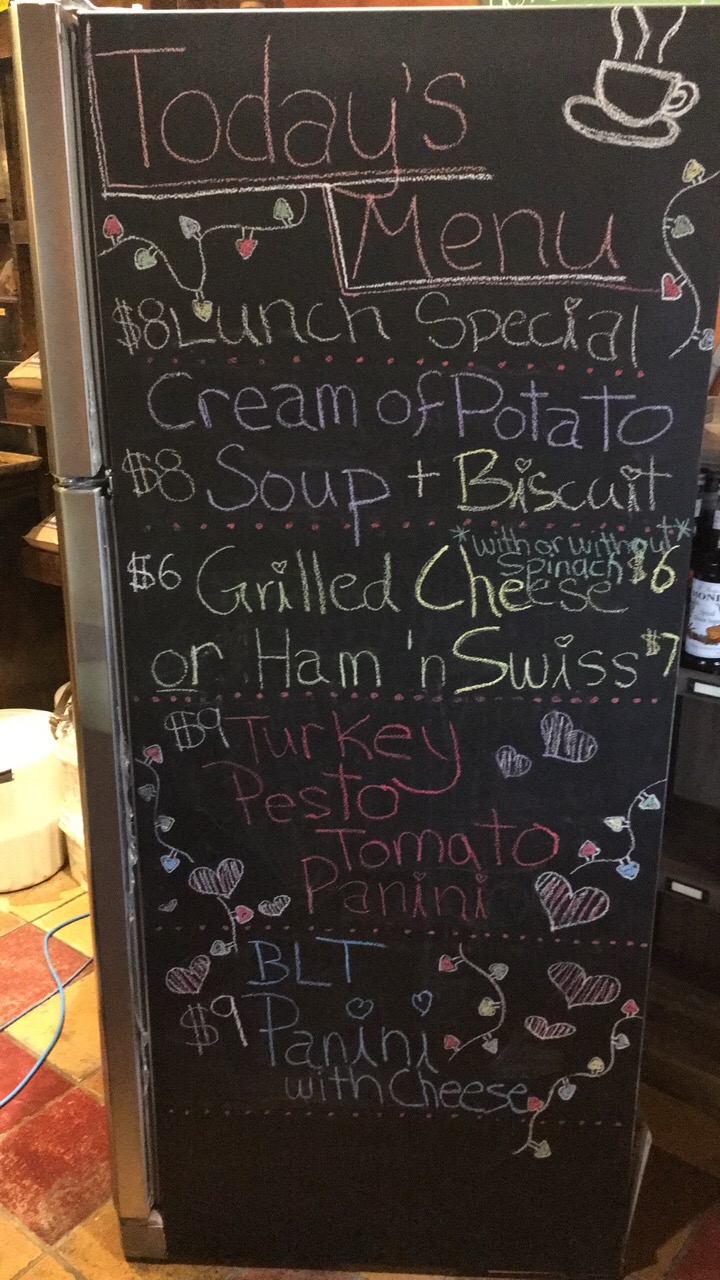 Today's
Menu
$8 Lunch Special
Cream of Potato
$8 Soup + Biscuit
*with or without*
Spinach
$6 Grilled Cheese $6
or Ham 'n Swiss $7
$9 Turkey
Pesto
Tomato
Panini
BLT
$9 Panini
with cheese